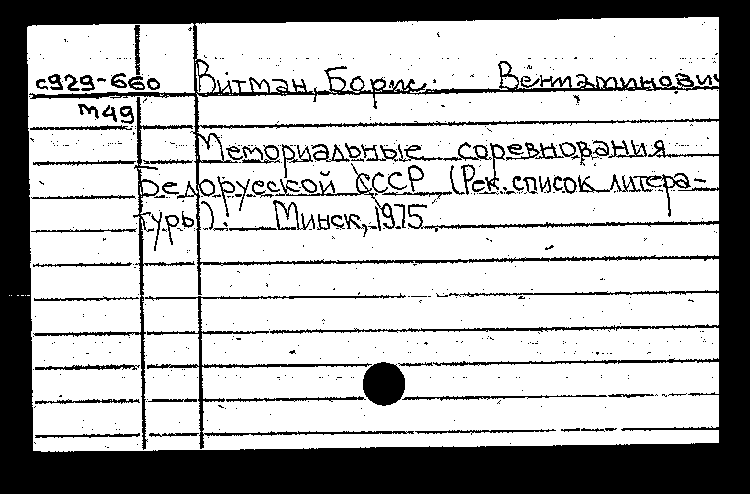 с929-660 Витман, Борис Вениаминович
м49
Мемориальные соревнования
Белорусской ССР (Рек. список литера-
туры). Минск, 1975.